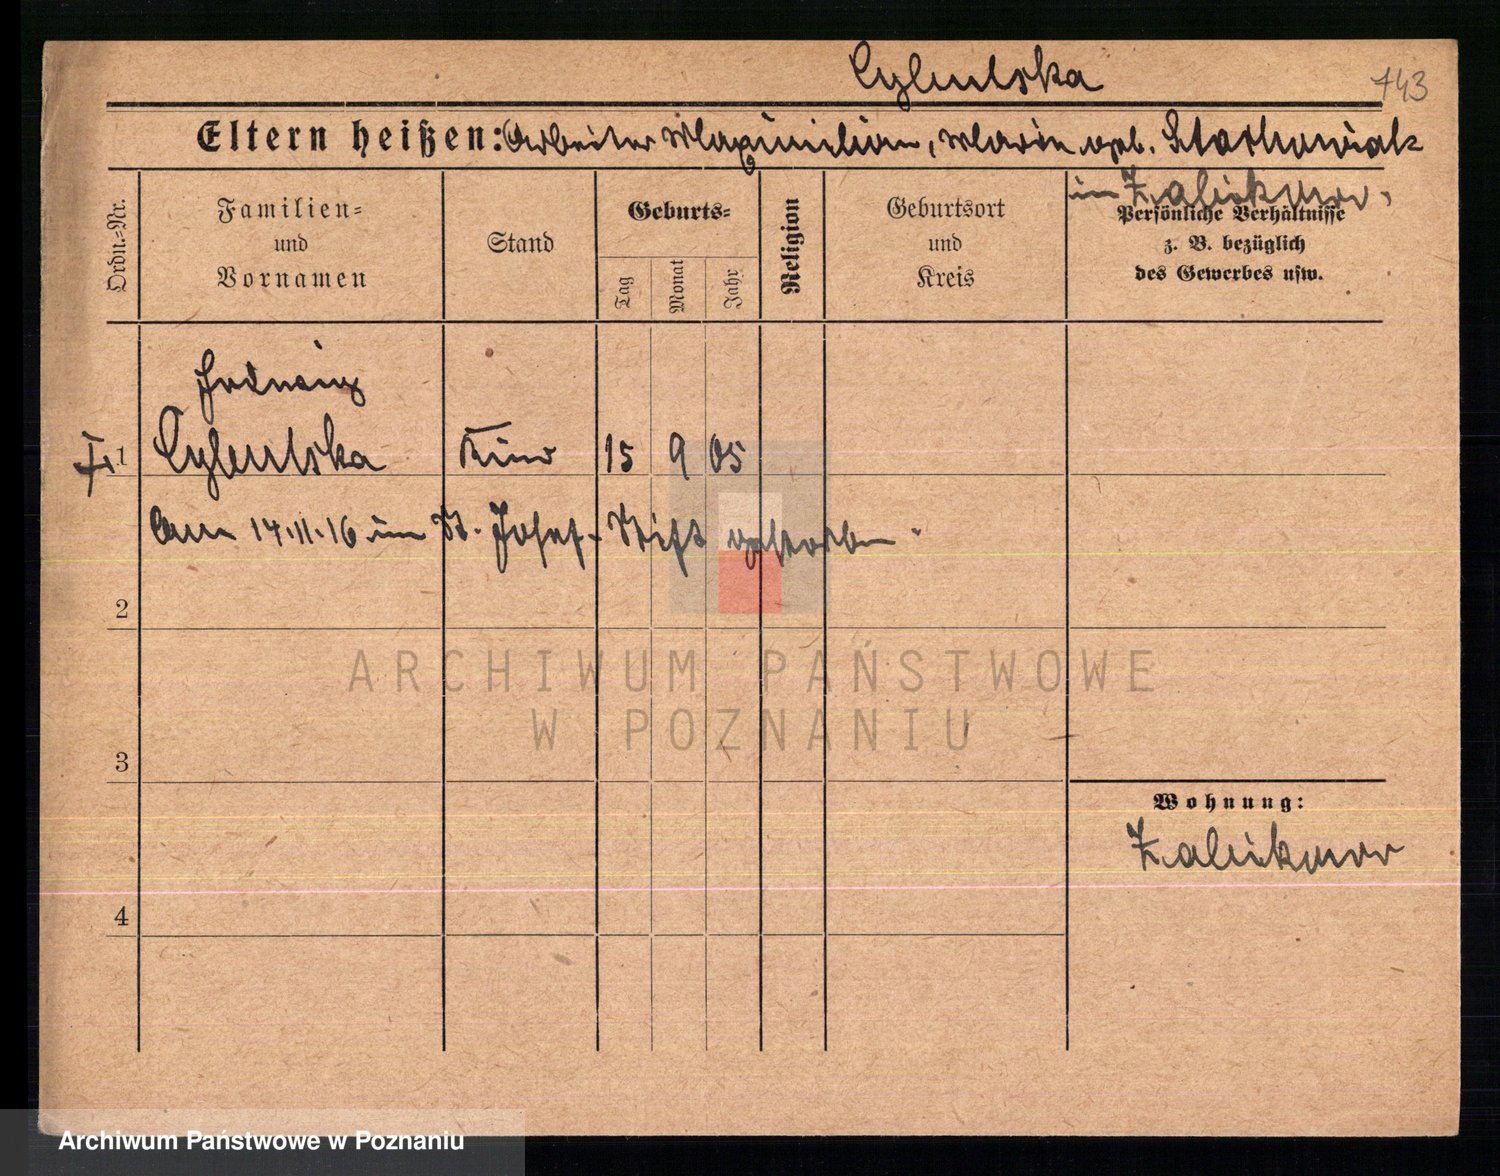 Cybulska
743
Eltern heißen: Arbeiter Maximilian, Marie geb. Stachowiak
in Zabikowo.
Ordn.=Nr.
Familien=
und
Vornamen
Stand
Geburts=
Tag
Monat
Jahr
Religion
Geburtsort
und
Kreis
Persönliche Verhältnisse
z. B. bezüglich
des Gewerbes usw.
Hedwig
1 Cybulska Kind 15 9 05
Am 14.11.16 im St. Josef-Stift gestorben
2
3
4
Wohnung:
Zabikowo
ARCHIWUM PAŃSTWOWE
W POZNANIU
Archiwum Państwowe w Poznaniu